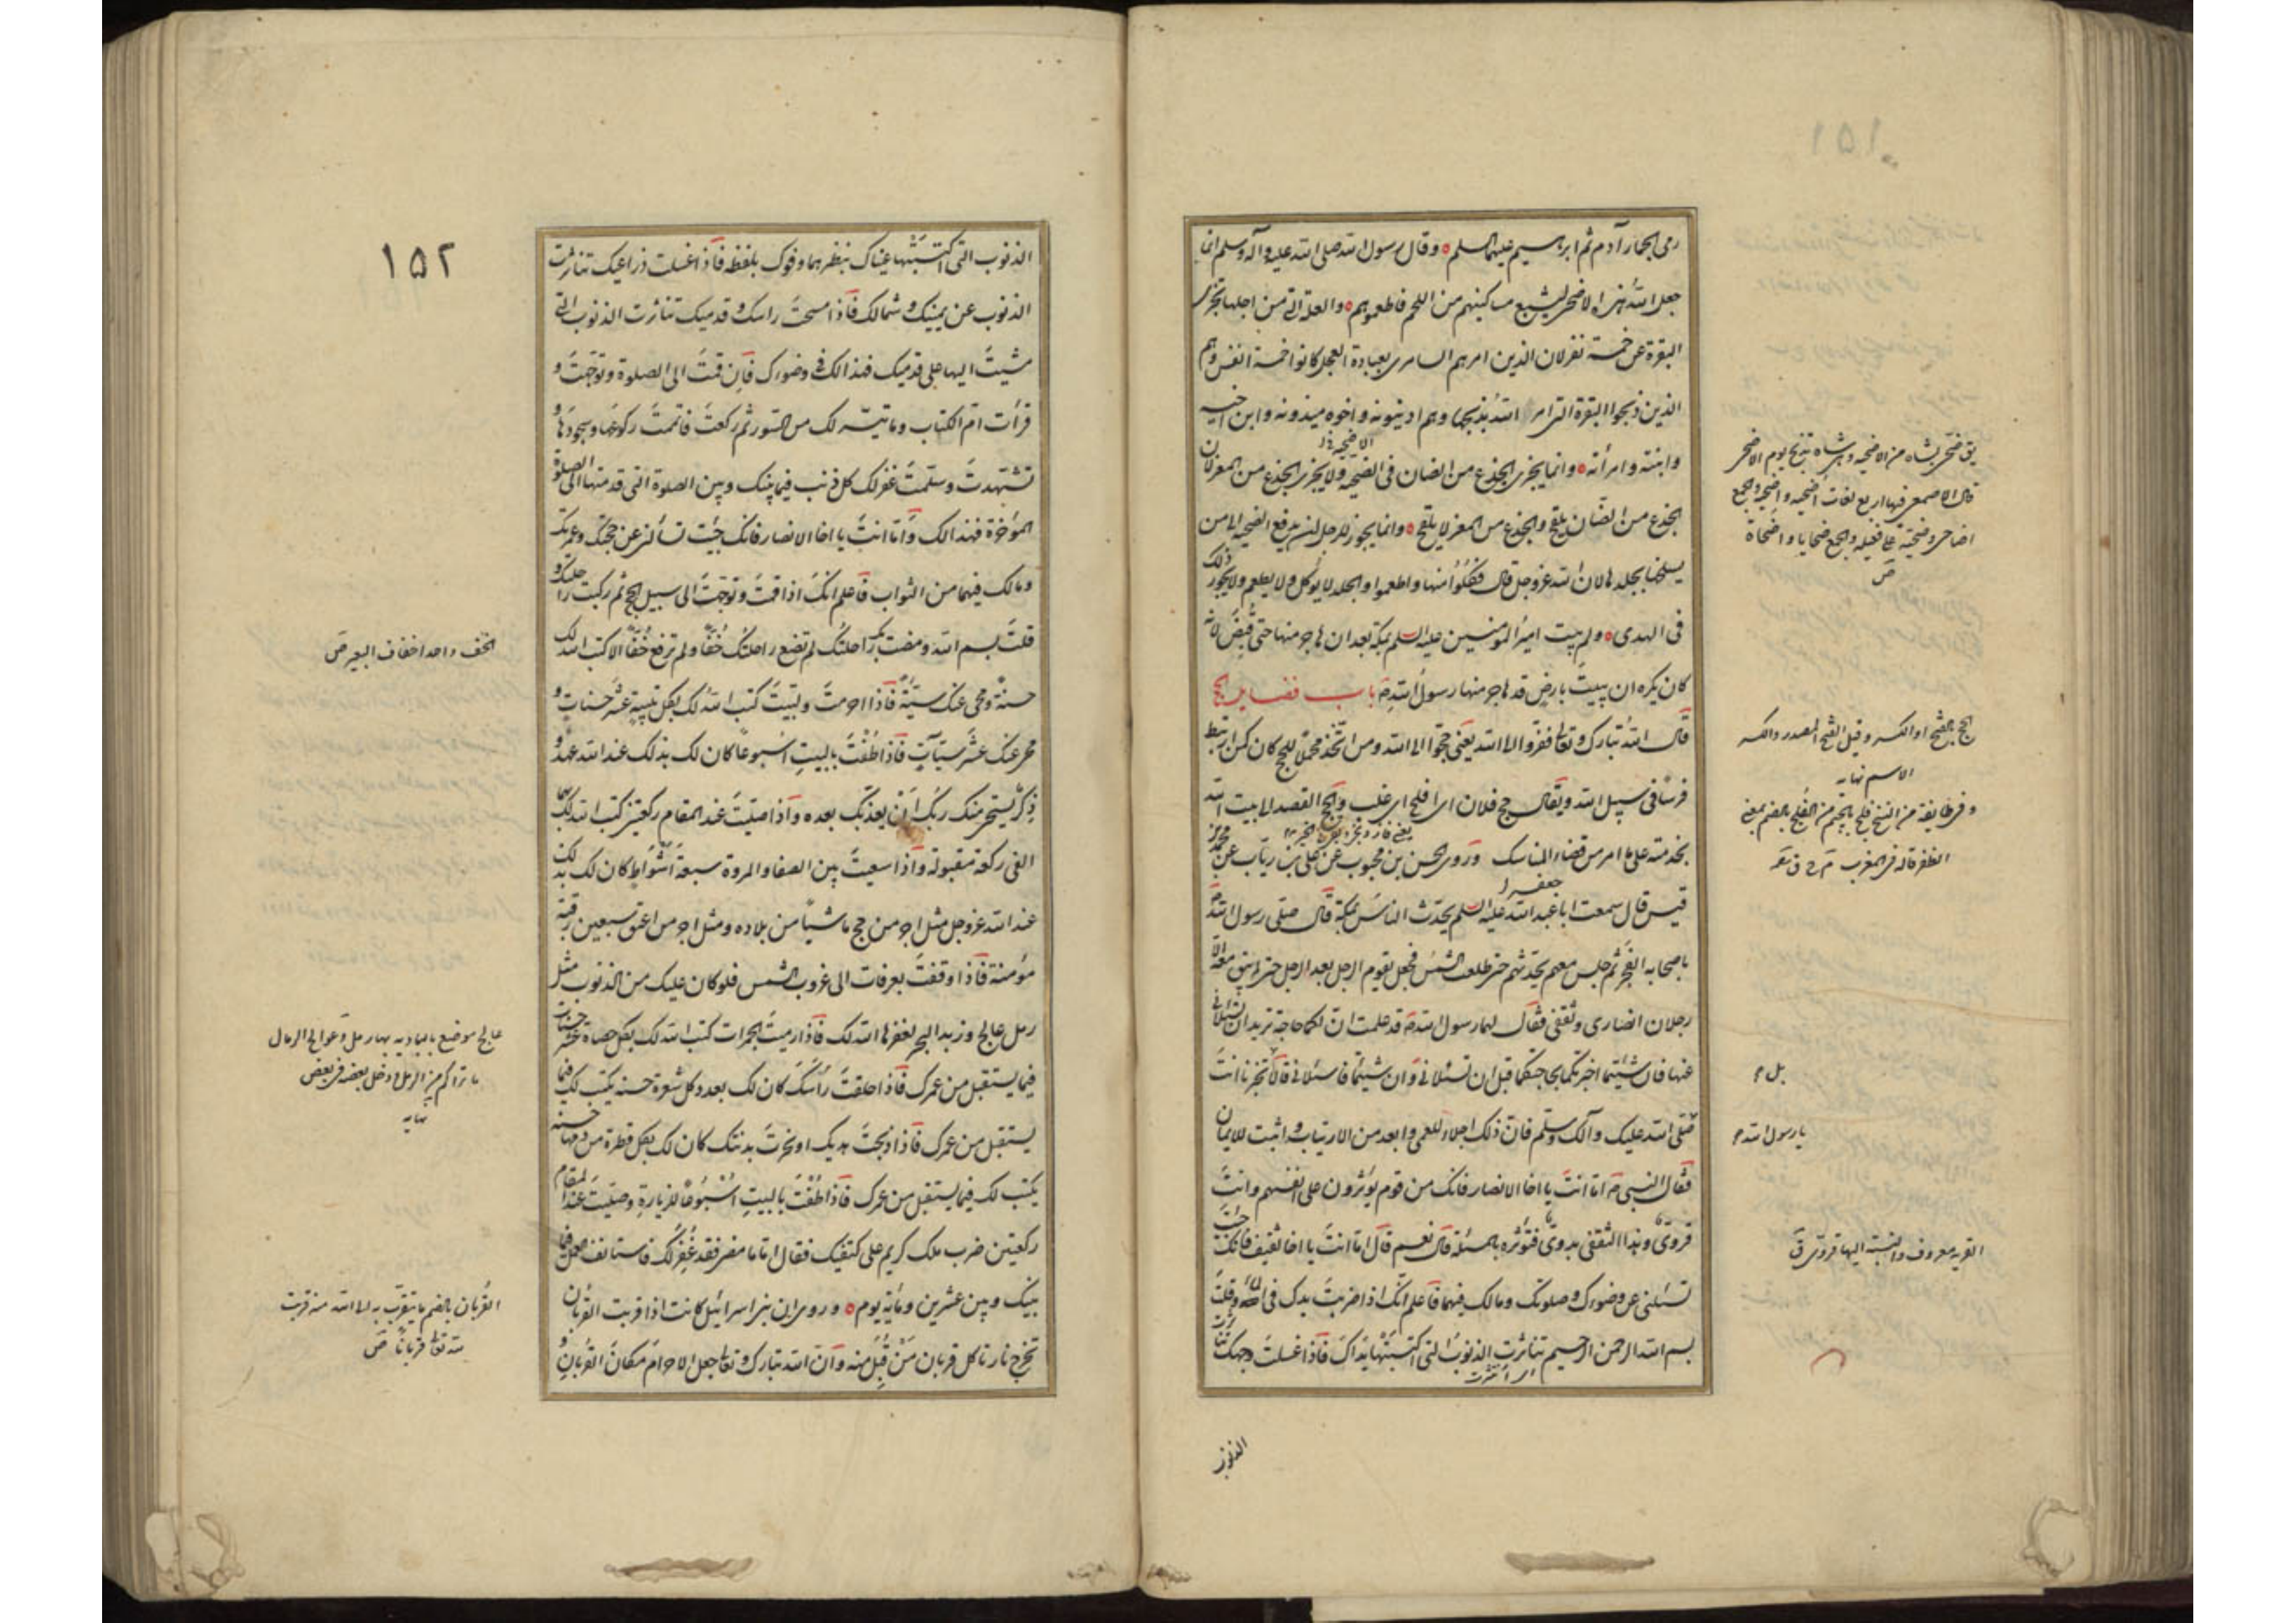 رمى الجمار آدم ثم ابرهيم عليهما السلم وقال رسول الله صلى الله عليه وآله وسلم انما
جعل الله هذا الاضحى ليشبع مساكينهم من اللحم فاطعموهم والعلة التي من اجلها تجزى
البقرة عن خمسة نفر لان الذين امرهم السامرى بعبادة العجل كانوا خمسة انفس وهم
الذين ذبحوا البقرة التى امر الله بذبحها وهم ادينونه واخوه ميذونه وابن اخيه
وابنته وامرأته وانما يجزى الجذع من الضان فى الضحية ولا يجزى الجذع من المعز لان
الاضحية خ
الجذع من الضان يلقح والجذع من المعز لا يلقح وانما يجوز للرجل ان يدفع الضحية الى من
يسلخها بجلدها لان الله عز وجل قال فكلوا منها واطعموا والجلد لا يؤكل ولا يطعم ولا يجوز ذلك
فى الهدى ولم يبت امير المومنين عليه السلم بمكة بعد ان هاجر منها حتى قبض لانه
كان يكره ان يبيت بارض قد هاجر منها رسول الله ص باب فضايل الحج
قال الله تبارك وتعالى ففروا الى الله يعنى حجوا الى الله ومن اتخذ محملا للحج كان كمن ارتبط
فرسا فى سبيل الله ويقال حج فلان اى افلج اى غلب والحج القصد الى بيت الله
بخدمته على ما امر من قضاء المناسك وروى الحسن بن محبوب عن على بن رياب عن محمد بن
قيس قال سمعت ابا عبد الله عليه السلم يحدث الناس بمكة قال صلى رسول الله ص
جعفر خ
باصحابه الفجر ثم جلس معهم يحدثهم حتى طلعت الشمس فجعل يقوم الرجل بعد الرجل حتى لم يبق معه الا
رجلان انصارى وثقفى فقال لهما رسول الله ص قد علمت ان لكما حاجة تريدان تسئلانى
عنها فان شئتما اخبرتكما بحاجتكما قبل ان تسئلانى وان شئتما فاسئلانى قالا تخبرنا انت
صلى الله عليك وآلك وسلم فان ذلك اجلاء للعمى وابعد من الارتياب واثبت للايمان
فقال النبى ص اما انت يا اخا الانصار فانك من قوم يؤثرون على انفسهم وانت
قروى وهذا الثقفى بدوى فتؤثره بالمسئلة قال نعم قال اما انت يا اخا ثقيف فانك جئت
تسئلنى عن وضوءك وصلوتك ومالك فيهما فاعلم انك اذا ضربت يدك فى الماء وقلت
بسم الله الرحمن الرحيم تناثرت الذنوب التى اكتسبتها يداك فاذا غسلت وجهك تناثرت
الذنوب
يق ضحى بشاة من الاضحية وهى شاة تذبح يوم الاضحى
قال الاصمعى فيها اربع لغات اضحية واضحية والجمع
اضاحى وضحية على فعيلة والجمع ضحايا واضحاة
ص
الحج بالفتح او الكسر وقيل الفتح المصدر والكسر
الاسم نهايه
وفى طايفة من النسخ فلج بالجيم من الفلج بالضم بمعنى
الظفر قاله فى المغرب
بل م
يا رسول الله م
القرية معروف والنسبة اليها قروى ق
١٥٢
الذنوب التى اكتسبتها عيناك بنظرهما وفوك بلفظه فاذا غسلت ذراعيك تناثرت
الذنوب عن يمينك وشمالك فاذا مسحت راسك وقدميك تناثرت الذنوب التى
مشيت اليها على قدميك فهذا لك فى وضوءك فان قمت الى الصلوة وتوجهت و
قرأت ام الكتاب وما تيسر لك من السور ثم ركعت فاتممت ركوعها وسجودها و
تشهدت وسلمت غفر لك كل ذنب فيما بينك وبين الصلوة التى قدمتها الى الصلوة
المؤخرة فهذا لك واما انت يا اخا الانصار فانك جئت تسألنى عن حجك وعمرتك
ومالك فيهما من الثواب فاعلم انك اذا قمت وتوجهت الى سبيل الحج ثم ركبت راحلتك و
قلت بسم الله ومضت بك راحلتك لم تضع راحلتك خفا ولم ترفع خفا الا كتب الله لك
حسنة ومحى عنك سيئة فاذا احرمت ولبيت كتب الله لك بكل تلبية عشر حسنات و
محى عنك عشر سيآت فاذا طفت بالبيت اسبوعا كان لك بذلك عند الله عهد و
ذكر يستحيى منك ربك ان يعذبك بعده واذا صليت عند المقام ركعتين كتب الله لك بهما
الفى ركعة مقبولة واذا سعيت بين الصفا والمروة سبعة اشواط كان لك بذلك
عند الله عز وجل مثل اجر من حج ماشيا من بلاده ومثل اجر من اعتق سبعين رقبة
مؤمنة فاذا وقفت بعرفات الى غروب الشمس فلو كان عليك من الذنوب مثل
رمل عالج وزبد البحر لغفرها الله لك فاذا رميت الجمرات كتب الله لك بكل حصاة عشر حسنات
فيما يستقبل من عمرك فاذا حلقت رأسك كان لك بعدد كل شعرة حسنة يكتب لك فيما
يستقبل من عمرك فاذا ذبحت هديك او نحرت بدنتك كان لك بكل قطرة من دمها حسنة
يكتب لك فيما يستقبل من عمرك فاذا طفت بالبيت اسبوعا للزيارة وصليت عند المقام
ركعتين ضرب ملك كريم على كتفيك فقال اما ما مضى فقد غفر لك فاستانف العمل فيما
بينك وبين عشرين ومائة يوم وروى ان بنى اسرائيل كانت اذا قربت القربان
تخرج نار تاكل قربان من قبل منه وان الله تبارك وتعالى جعل الاحرام مكان القربان
الخف واحد اخفاف البعير ص
عالج موضع بالبادية بها رمل وعوالج الرمال
ما تراكم من الرمل ودخل بعضه فى بعض
نهايه
القربان بالضم ما يتقرب به الى الله منه قربت
لله تعالى قربانا ص